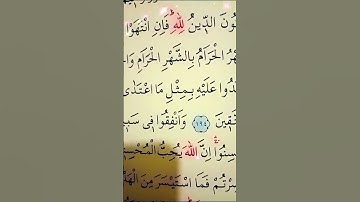 ـُونَ الدِّينُ لِلّٰهِ فَاِنِ انْتَهَوْا
ـهْرُ الْحَرَامُ بِالشَّهْرِ الْحَرَامِ وَا
ـدُوا عَلَيْهِ بِمِثْلِ مَا اعْتَدٰى
ـقٖينَ ﴿١٩٤﴾ وَاَنْفِقُوا فٖى سَبٖـ
ـسِنُوا اِنَّ اللّٰهَ يُحِبُّ الْمُحْسِـ
ـرْتُمْ فَمَا اسْتَيْسَرَ مِنَ الْهَـ